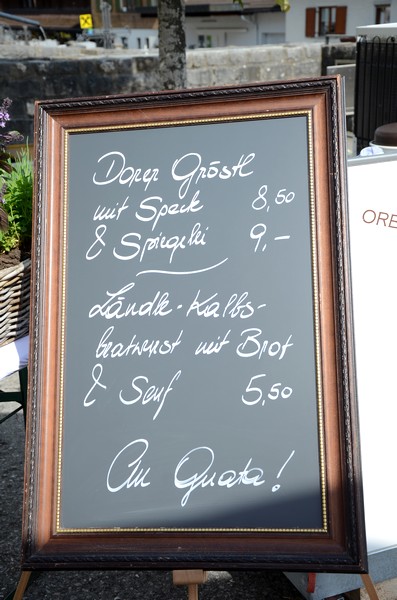 Darer Gröstl
mit Speck 8,50
& Spiegelei 9,-
Ländle-Kalbs-
bratwurst mit Brot
& Senf 5,50
An Guata!
ORE